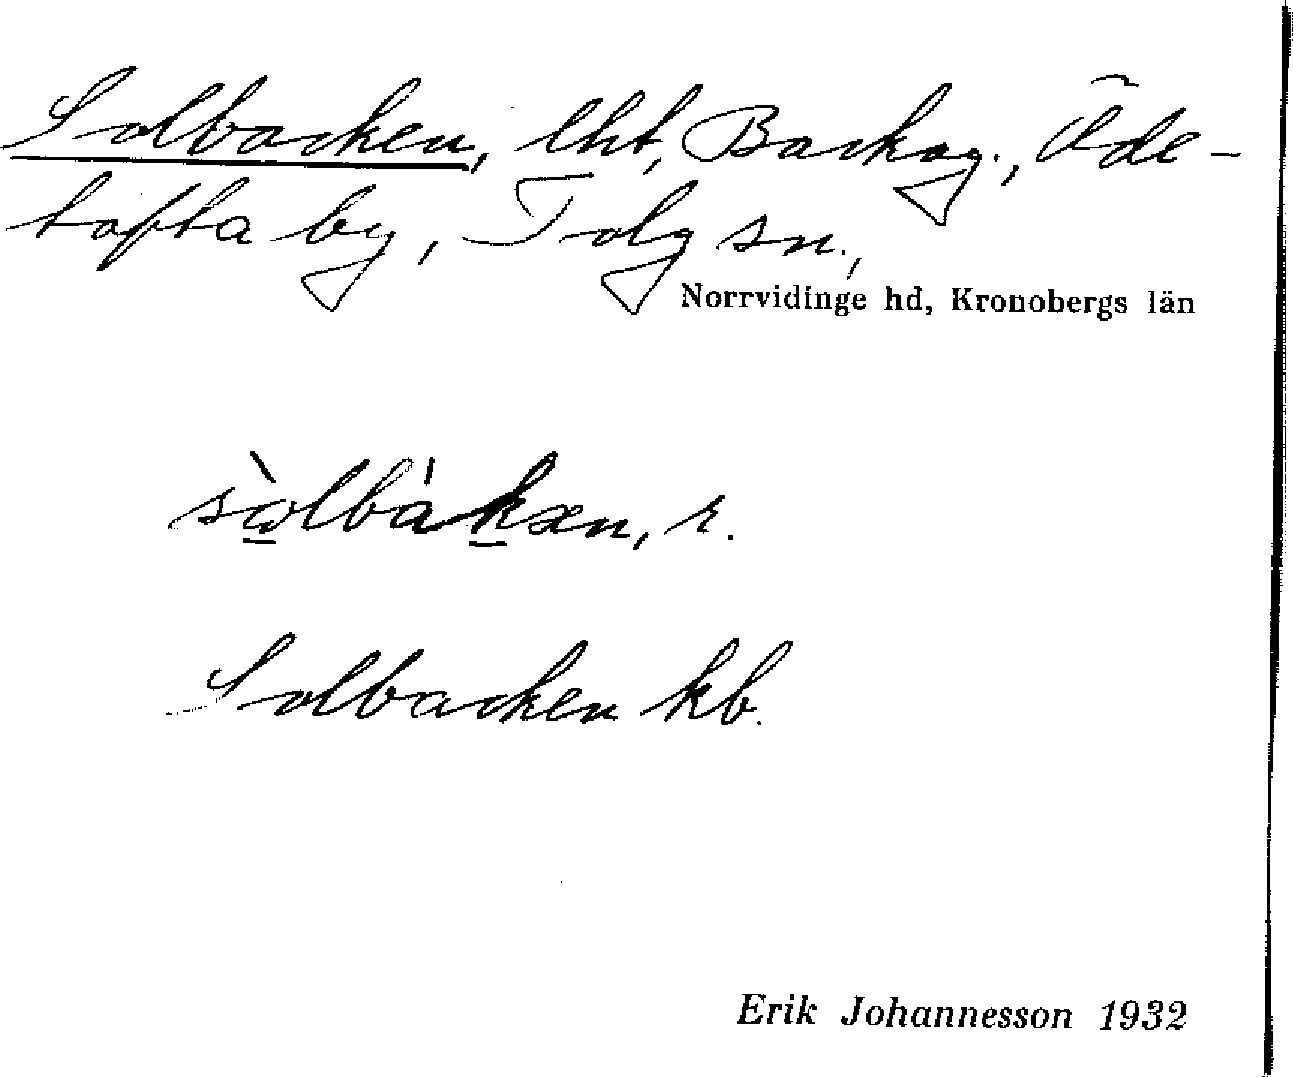 Solbacken, lht, Backag., Öde-
tofta by, Tolg sn.,
Norrvidinge hd, Kronobergs län
sòlbákxn, r.
Solbacken kb.
Erik Johannesson 1932